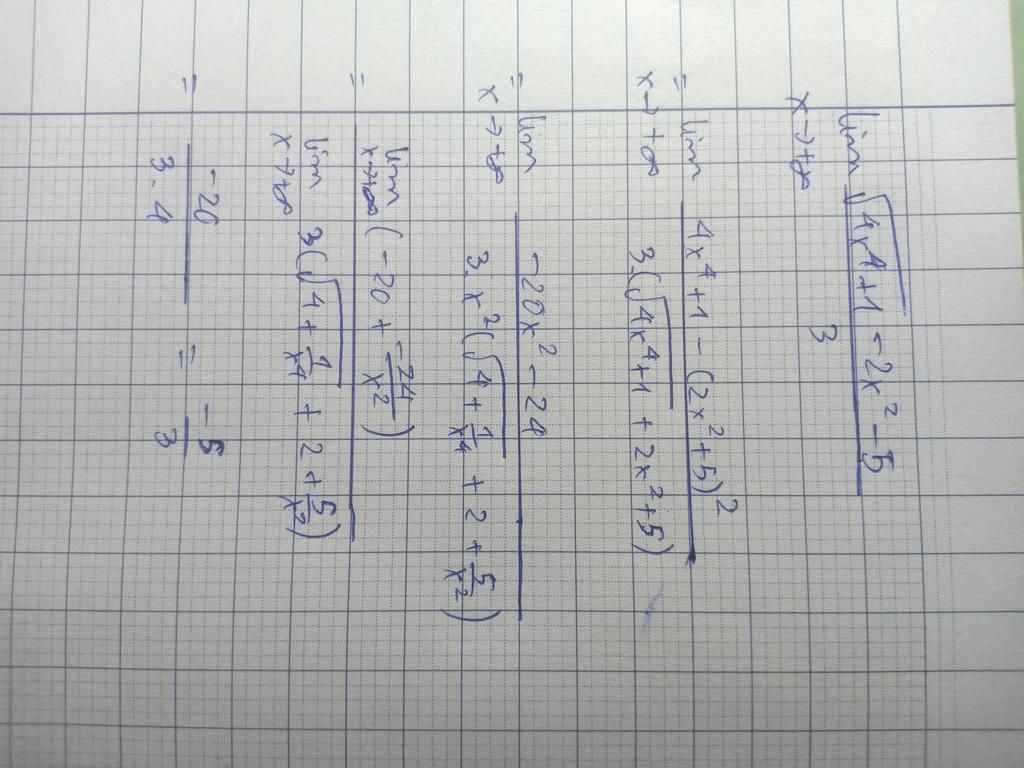 lim √(4x⁴+1) - 2x² - 5
x→+∞ 3
= lim 4x⁴+1 - (2x²+5)²
x→+∞ 3(√(4x⁴+1) + 2x²+5)
= lim -20x² - 24
x→+∞ 3.x²(√(4+1/x⁴) + 2 + 5/x²)
= lim x→+∞ (-20 + -24/x²)
lim x→+∞ 3(√(4+1/x⁴) + 2 + 5/x²)
= -20/3.4 = -5/3